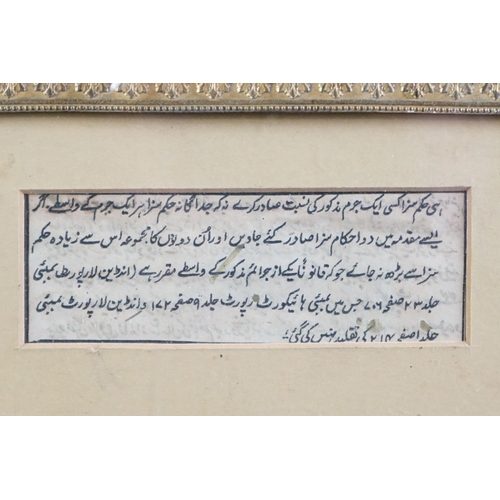 ہی حکم سزا کسی ایک جرم مذکور کی نسبت صادر کرے نہ کہ جداگانہ حکم سزا ہر ایک جرم کے واسطے۔ اگر
ایسے مقدمہ میں دو احکام سزا صادر کئے جاویں اور اُن دونوں کا مجموعہ اس سے زیادہ حکم
سزا سے بڑھ نہ جائے جو کہ قانوناً یکے از جرائم مذکور کے واسطے مقرر ہے (انڈین لا رپورٹ بمبئی
جلد ۲۳ صفحہ ۷۰۶ جس میں بمبئی ہائیکورٹ رپورٹ جلد ۹ صفحہ ۱۷۲ و انڈین لا رپورٹ بمبئی
جلد ۱ صفحہ ۲۱۴ کی تقلید نہیں کی گئی